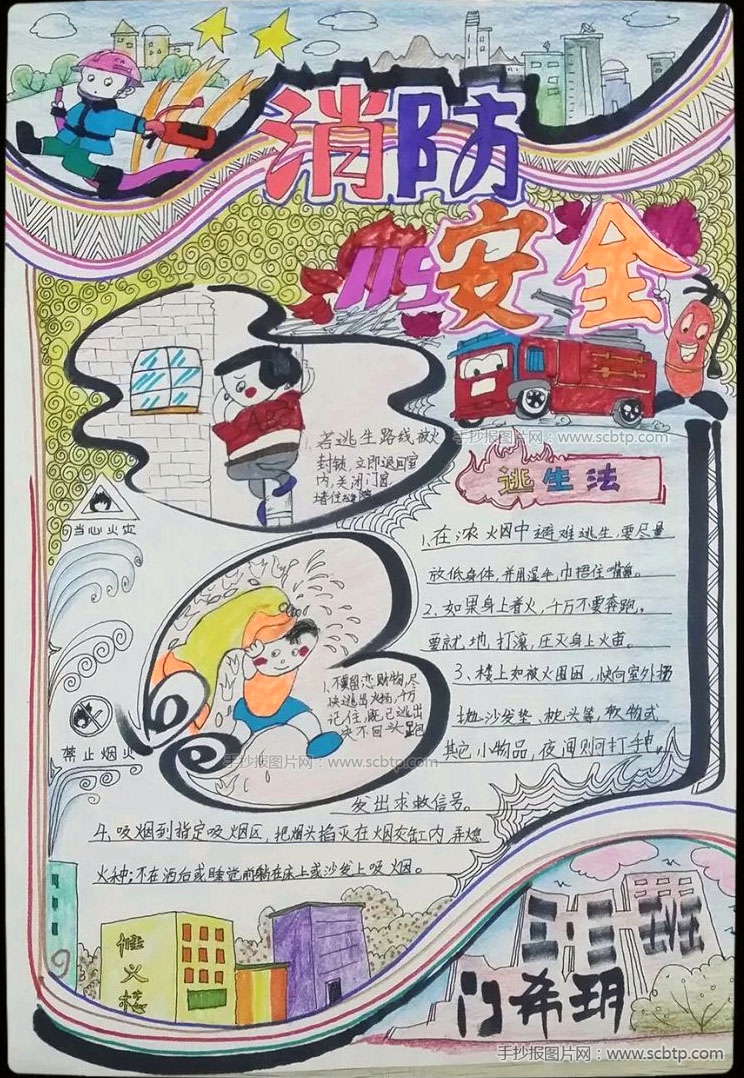 消防
119安全
手抄报图片网：www.scbtp.com
若逃生路线被火
封锁，立即退回室
内，关闭门窗，
堵住
逃生法
当心火灾
1、在浓烟中避难逃生，要尽量
放低身体，并用湿毛巾捂住嘴鼻。
2、如果身上着火，千万不要奔跑。
要就地打滚，压灭身上火苗。
3、楼上如被火围困，快向室外扔
沙发垫、枕头等，软物或
其它小物品，夜间则可打手电，
发出求救信号。
1、不要留恋财物，尽
快逃出火场，千万
记住，既已逃出
决不回头跑
禁止烟火
手抄报图片网：www.scbtp.com
4、吸烟到指定吸烟区，把烟头掐灭在烟灰缸内，弄熄
火种；不在酒后或睡觉前躺在床上或沙发上吸烟。
三、三班
门希玥
手抄报图片网：www.scbtp.com